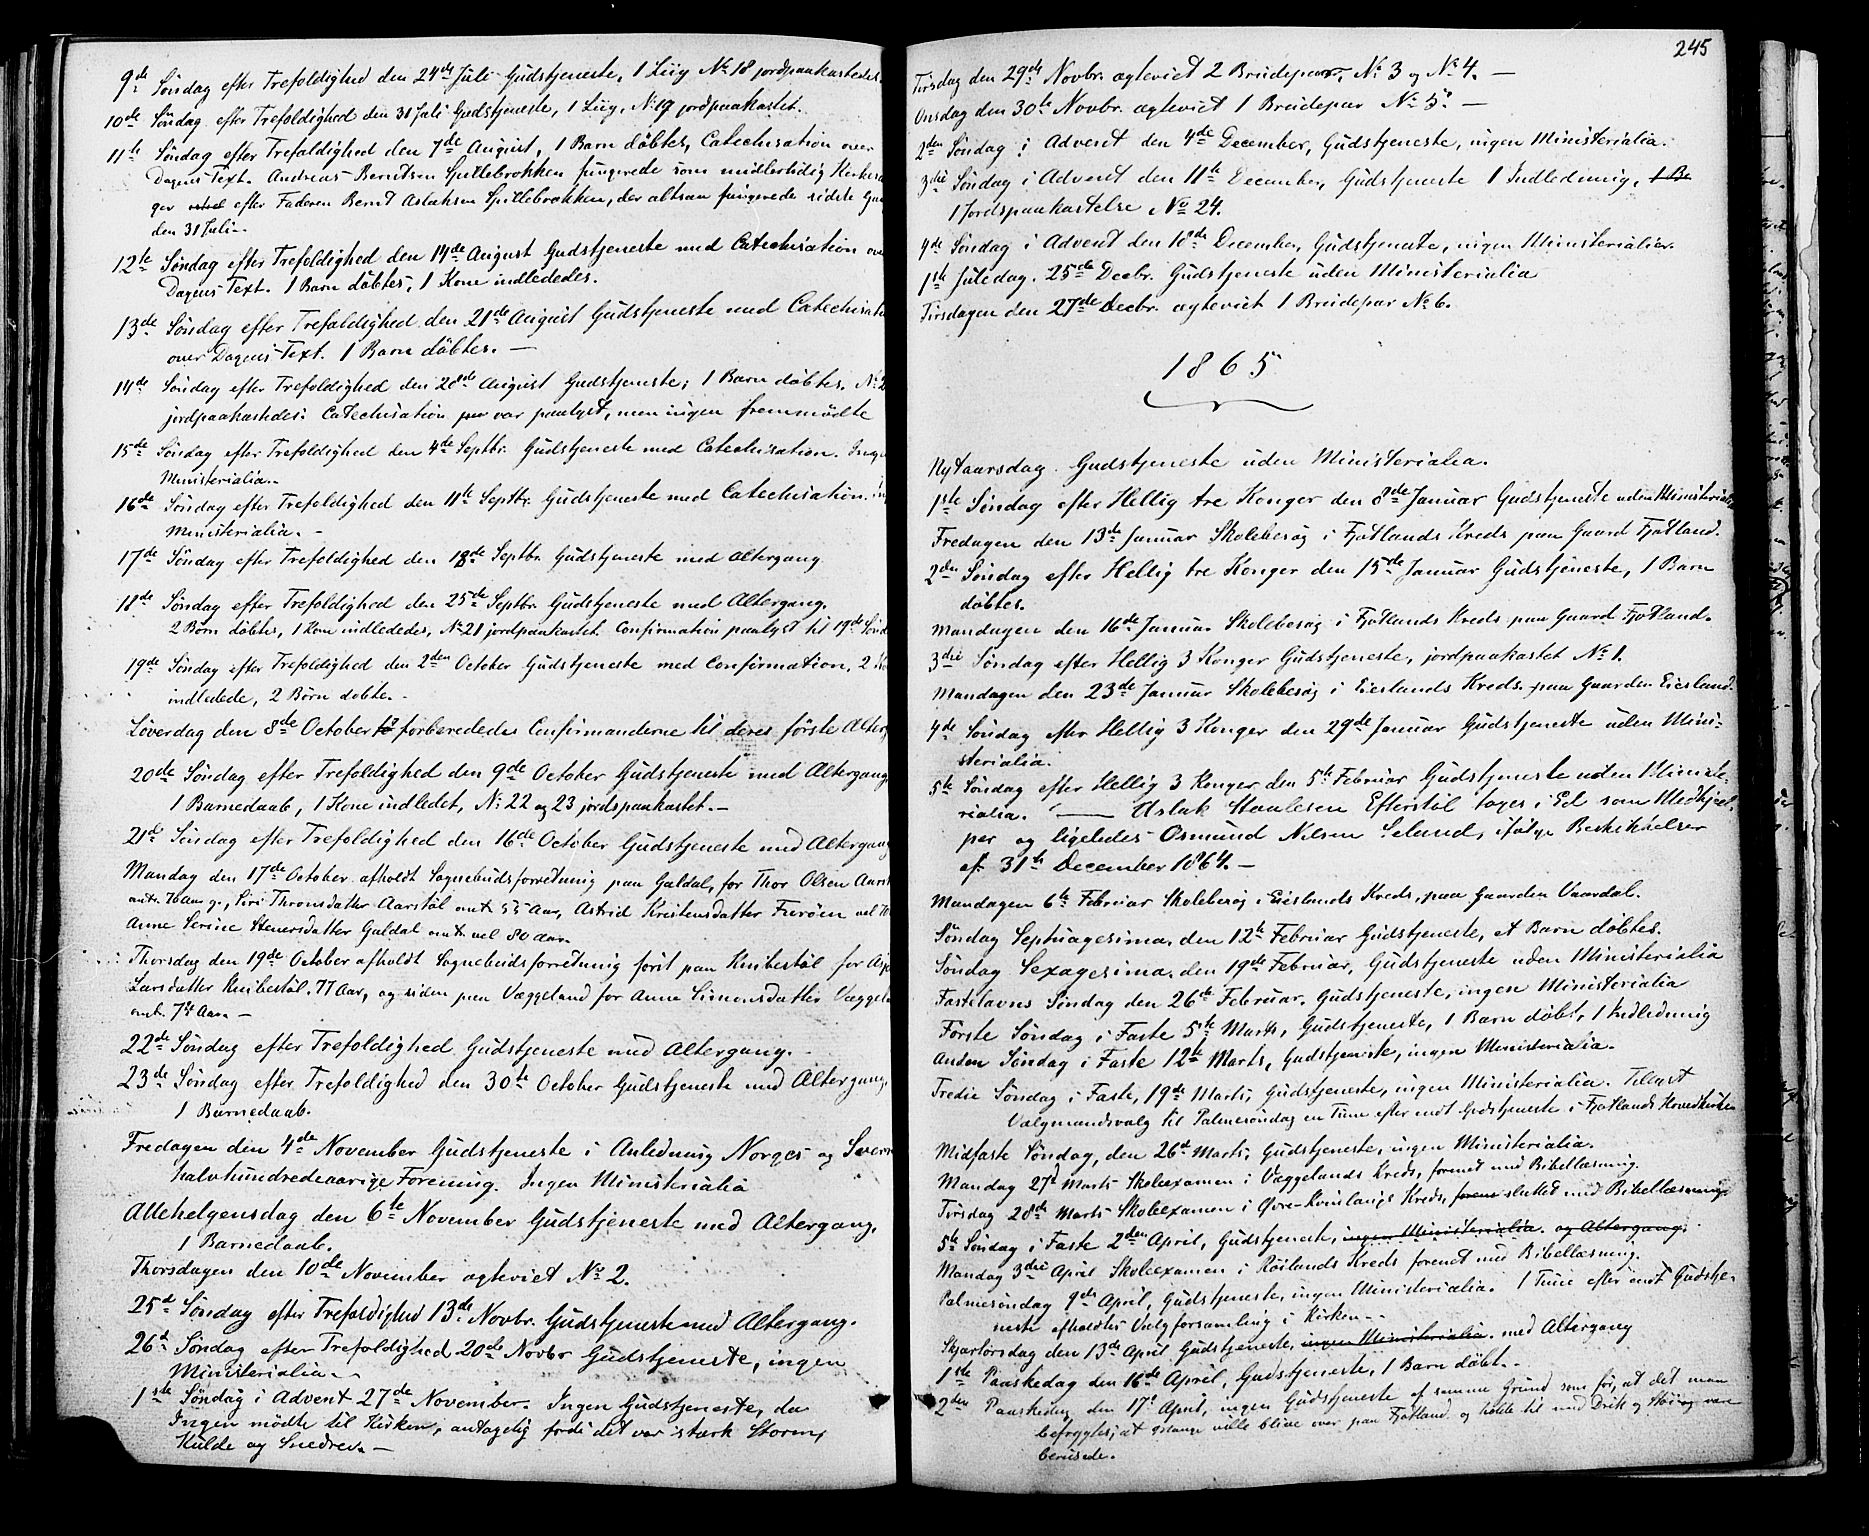 9de Søndag efter Trefoldighed den 24de Juli Gudstjeneste, 1 Liig No 18 jordpaakastedes.
10de Søndag efter Trefoldighed den 31 Juli Gudstjeneste, 1 Liig, No 19 jordpaakastet.
11te Søndag efter Trefoldighed den 7de August, 1 Barn döbtes, Catechisation over
Dagens Text. Andreas Berntsen Spillebrokken fungerede som midlertidig Kirkesan-
ger efter Faderen Bernt Aslaksen Spillebrokken, der altsaa fungerede sidste Gang
den 31 Juli.
12te Søndag efter Trefoldighed den 14de August Gudstjeneste med Catechisation over
Dagens Text. 1 Barn döbtes, 1 Kone indlededes.
13de Søndag efter Trefoldighed den 21de August Gudstjeneste med Catechisation
over Dagens Text. 1 Barn döbtes. —
14de Søndag efter Trefoldighed den 28de August Gudstjeneste; 1 Barn döbtes. No 2
jordpaakastedes. Catechisation var paalyst, men ingen fremmödte
15de Søndag efter Trefoldighed den 4de Septbr. Gudstjeneste med Catechisation. Ingen
Ministerialia.
16de Søndag efter Trefoldighed den 11te Septbr. Gudstjeneste med Catechisation. In
Ministerialia. -
17de Søndag efter Trefoldighed den 18de Septbr. Gudstjeneste med Altergang
18de Søndag efter Trefoldighed den 25de Septbr. Gudstjeneste med Altergang.
2 Börn döbtes, 1 Kone indlededes, No 21 jordpaakastet. Confirmation paalyst til 19de Sönd
19de Søndag efter Trefoldighed den 2den October Gudstjeneste med Confirmation. 2 Ko
indledede, 2 Börn döbte. -
Löverdag den 8de October forberededes Confirmanderne til deres förste Alterg
20de Søndag efter Trefoldighed den 9de October Gudstjeneste med Altergang
1 Barnedaab, 1 Kone indledet, No 22 og 23 jordspaakastet. —
21de Søndag efter Trefoldighed den 16de October Gudstjeneste med Altergang
Mandag den 17de October afholdt Sognebudsforretning paa Galdal, for Thor Olsen Aarst
omtr. 76 Aar g., Siri Thronsdatter Aarstöl omt. 55 Aar, Astrid Kristensdatter vel 70
Anne Serine Steuersdatter Galdal omt. vel 80 Aar.
Thorsdag den 19de October afholdt Sognebudsforretning först paa Knibestöl for
Larsdatter Knibestöl, 77 Aar, og siden paa Væggeland for Anne Simonsdatter Væggel
omt. 74 Aar. —
22de Søndag efter Trefoldighed Gudstjeneste med Altergang. -
23de Søndag efter Trefoldighed den 30te October Gudstjeneste med Altergang.
1 Barnedaab.
Fredagen den 4de November Gudstjeneste i Anledning Norges og Sverri
halvhundredeaarige Forening. Ingen Ministerialia
Allehelgensdag den 6te November Gudstjeneste med Altergang.
1 Barnedaab.
Thorsdagen den 10de November ægteviet No 2.
25de Søndag efter Trefoldighed 13de Novbr. Gudstjeneste med Altergang.
26de Søndag efter Trefoldighed 20de Novbr Gudstjeneste, ingen
Ministerialia. -
1ste Søndag i Advent 27de November. Ingen Gudstjeneste, da
Ingen mödte til Kirken, antagelig fordi det var stærk Storm,
Kulde og Snedrev. —
245
Tirsdag den 29de Novbr. ægteviet 2 Brudepar, No 3 og No 4. —
Onsdag den 30te Novbr. ægteviet 1 Brudepar No 5. —
2den Søndag i Advent den 4de December, Gudstjeneste, ingen Ministerialia.
3die Søndag i Advent den 11te December, Gudstjeneste 1 Indledning, 1 Ba
1 Jordspaakastelse No 24.
4de Søndag i Advent den 18de December, Gudstjeneste, ingen Ministerialia.
1ste Juledag. 25de Decbr. Gudstjeneste uden Ministerialia
Tirsdagen den 27de Decbr. ægteviet 1 Brudepar No 6.
1865
Nytaarsdag. Gudstjeneste uden Ministerialia.
1ste Søndag efter Hellig tre Konger den 8de Januar Gudstjeneste uden Ministerialia
Fredagen den 13de Januar Skolebesøg i Fjotlands Kreds paa Gaard Fjotland.
2den Søndag efter Hellig tre Konger den 15de Januar Gudstjeneste, 1 Barn
döbtes.
Mandagen den 16de Januar Skolebesøg i Fjotlands Kreds paa Gaard Fjotland.
3die Søndag efter Hellig 3 Konger Gudstjeneste, jordpaakastet No 1.
Mandagen den 23de Januar Skolebesøg i Eieslands Kreds paa Gaarden Eiesland.
4de Søndag efter Hellig 3 Konger den 29de Januar Gudstjeneste uden Mini-
sterialia.
5te Søndag efter Hellig 3 Konger den 5te Februar Gudstjeneste uden Ministe-
rialia. — Aslak Staalesen Efterstöl toges i Ed som Medhjæl-
per og ligeledes Osmund Nilsen Seland, ifølge Beskikkelser
af 31te December 1864. —
Mandagen 6te Februar Skolebesøg i Eieslands Kreds, paa Gaarden Vaardal.
Søndag Septuagesima, den 12te Februar Gudstjeneste, et Barn döbtes.
Søndag Sexagesima, den 19de Februar, Gudstjeneste uden Ministerialia
Fastelavns Søndag den 26de Februar, Gudstjeneste, ingen Ministerialia
Første Søndag i Faste 5te Marts, Gudstjeneste, 1 Barn döbt, 1 Indledning
Anden Søndag i Faste 12te Marts, Gudstjeneste, ingen Ministerialia.
Tredie Søndag i Faste, 19de Marts, Gudstjeneste, ingen Ministerialia. Tillyst
Valgmandsvalg til Palmesøndag en Time efter endt Gudstjeneste i Fjotlands Hovedkirke
Midfaste Søndag, den 26de Marts, Gudstjeneste, ingen Ministerialia.
Mandag 27de Marts Skoleexamen i Væggelands Kreds, forenet med Bibellæsning.
Tirsdag 28de Marts Skoleexamen i Øvre-Kvinlougs Kreds, foren sluttet med Bibellæsning
5te Søndag i Faste 2den April, Gudstjeneste, ingen Ministerialia. og Altergang.
Mandag 3die April Skoleexamen i Röilands Kreds forenet med Bibellæsning.
Palmesøndag 9de April, Gudstjeneste, ingen Ministerialia. 1 Time efter endt Gudstje-
neste afholdtes Valgforsamling i Kirken. -
Skjærtorsdag den 13de April Gudstjeneste, ingen Ministerialia. med Altergang
1ste Paaskedag den 16de April, Gudstjeneste, 1 Barn döbt. -
2den Paaskedag den 17de April, ingen Gudstjeneste af samme Grund som för, at det maa
befrygtes, at Mange ville blive over paa Fjotland og holde til med Drik og Støi og være
berusede.